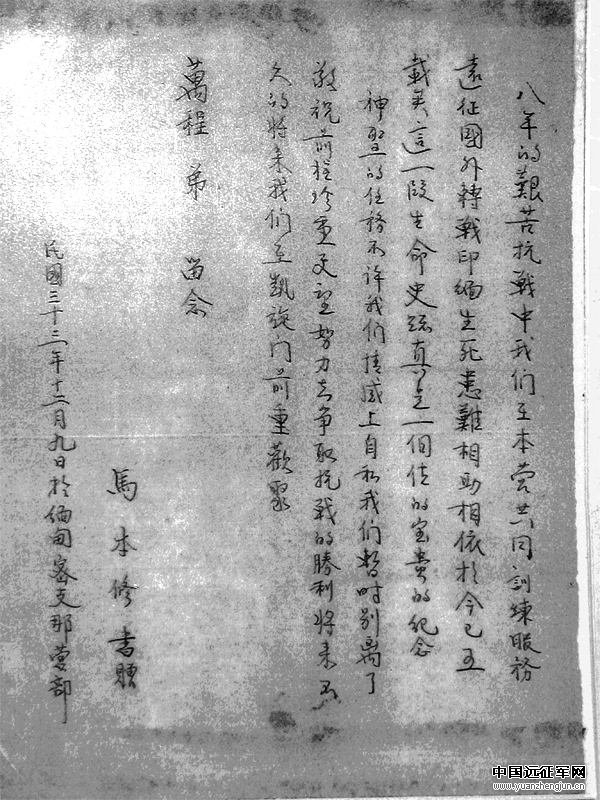 八年的艱苦抗戰中我们在本营共同訓練服務
遠征國外轉戰印緬生死患難相助相依於今已五
載矣這一段生命史跡真是一個值的宝貴的紀念
神聖的任務不許我们情感上自私我们暫时别离了
敬祝前程珍重更望努力去争取抗戰的勝利將來不
久的將來我们在凱旋门前重歡聚
萬程 弟 留念
馬本修書贈
民國三十三年十二月九日於緬甸密支那营部
中国远征军网
www.yuanzhengjun.cn